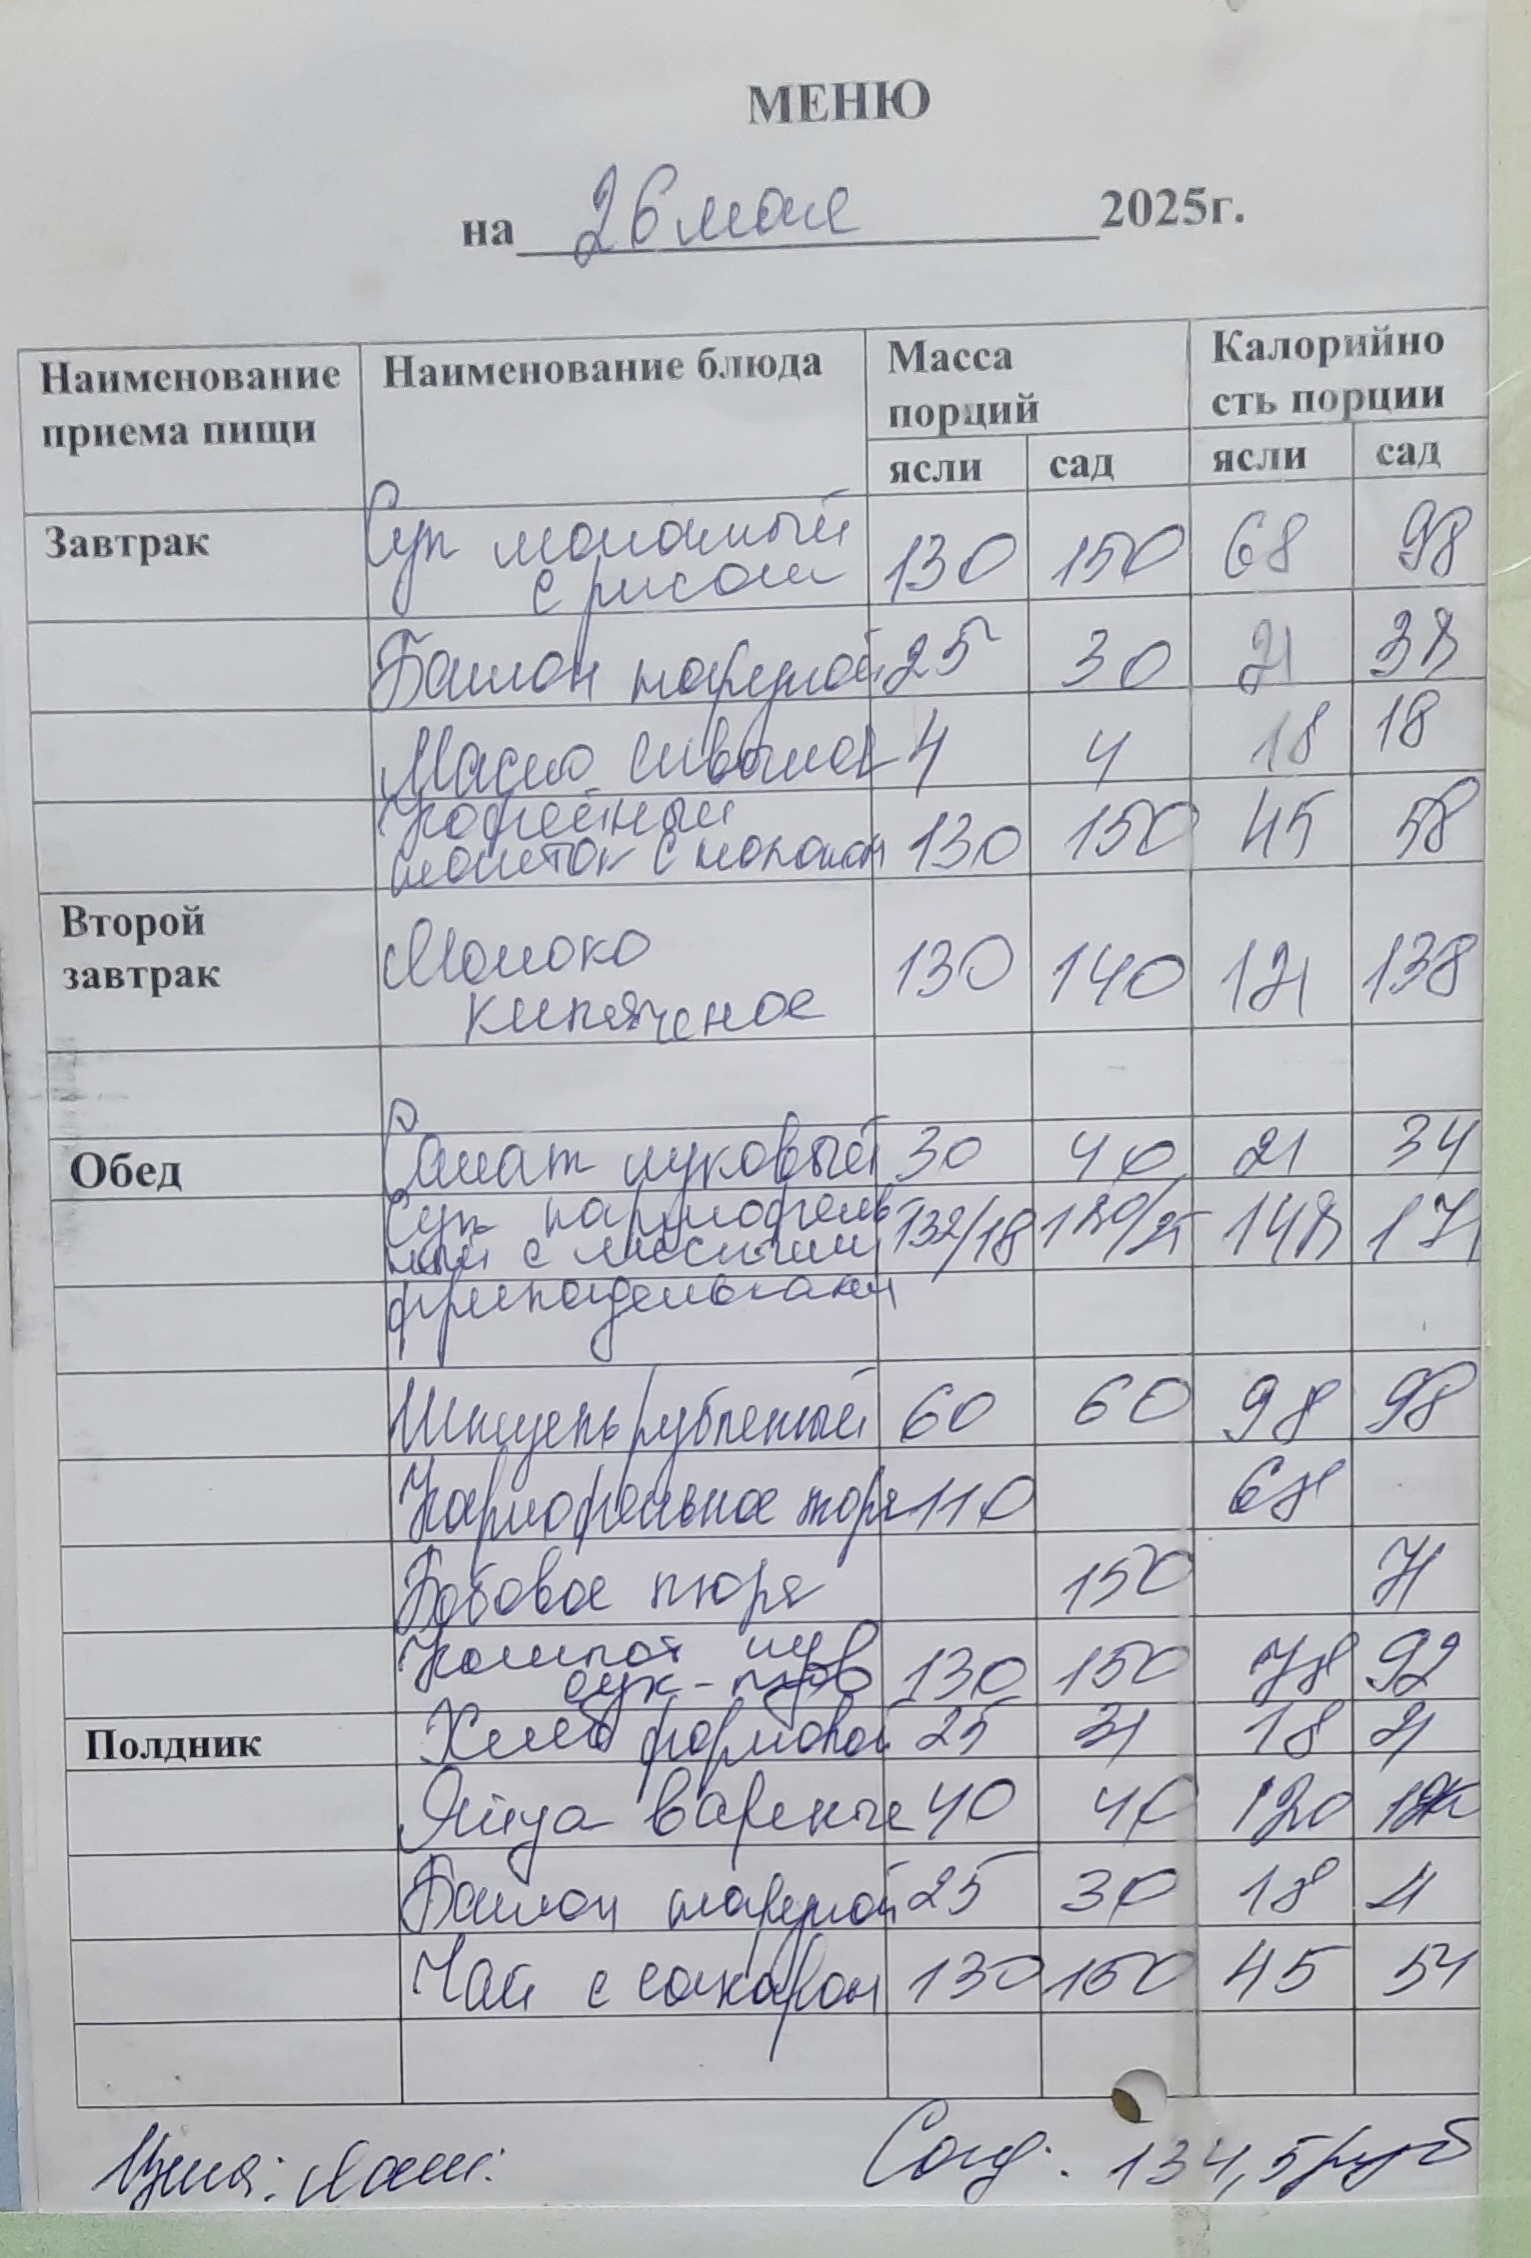 МЕНЮ
на 26 мая 2025г.
Наименование приема пищи Наименование блюда Масса порций Калорийность порции
ясли сад ясли сад
Завтрак Суп молочный
с рисом 130 150 68 98
Батон нарезной 25 30 21 38
Масло сливочное 4 4 18 18
Кофейный
напиток с молоком 130 150 45 58
Второй завтрак Молоко
кипяченое 130 140 121 138
Обед Салат луковый 30 40 21 34
Суп картофель
ный с мясными 132/18 180/25 148 171
фрикадельками
Шницель рубленый 60 60 98 98
Картофельное пюре 110 68
Бобовое пюре 150 71
Компот из
сух-фр 130 150 78 92
Полдник Хлеб формовой 25 31 18 21
Яйца вареные 40 40 120
Батон нарезной 25 30 18 21
Чай с сахаром 130 150 45 54
Цена: Ясли: Сад: 134,5 руб